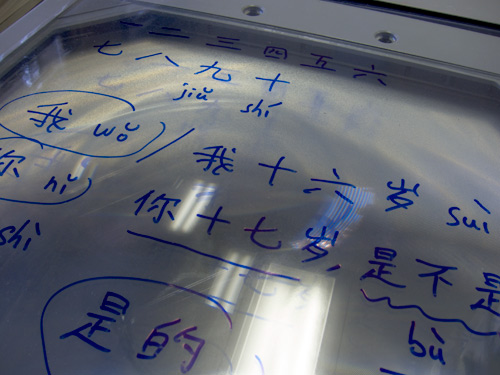 一 二 三 四 五 六
七 八 九 十
jiǔ shí
我 wǒ / 我 十 六 岁 suì
你 nǐ 你 十 七 岁, 是 不 是
shì bù
是 的